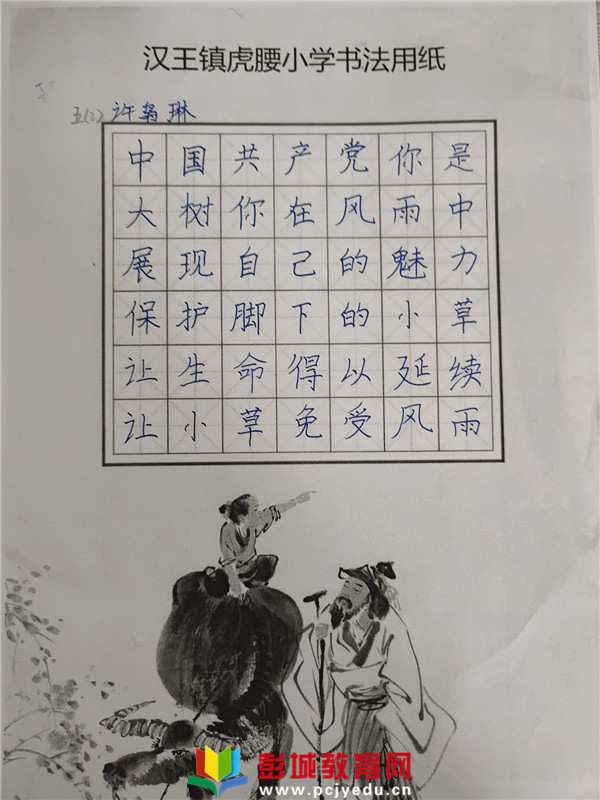 汉王镇虎腰小学书法用纸
五(2) 许 琳
中国共产党你是
大树你在风雨中
展现自己的魅力
保护脚下的小草
让生命得以延续
让小草免受风雨
彭城教育网
www.pcjyedu.cn